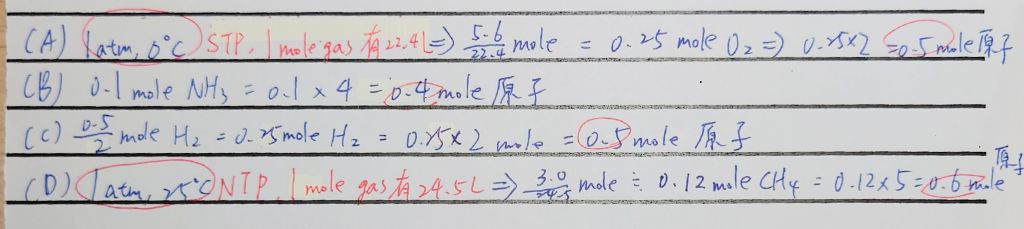 (A) 1atm, 0°C STP, 1 mole gas 有22.4L ⇒ 5.6/22.4 mole = 0.25 mole O₂ ⇒ 0.25×2 = 0.5 mole 原子
(B) 0.1 mole NH₃ = 0.1 × 4 = 0.4 mole 原子
(C) 0.5/2 mole H₂ = 0.25 mole H₂ = 0.25×2 mole = 0.5 mole 原子
(D) 1atm, 25°C NTP, 1 mole gas 有24.5L ⇒ 3.0/24.5 mole ≒ 0.12 mole CH₄ = 0.12×5 = 0.6 mole 原子